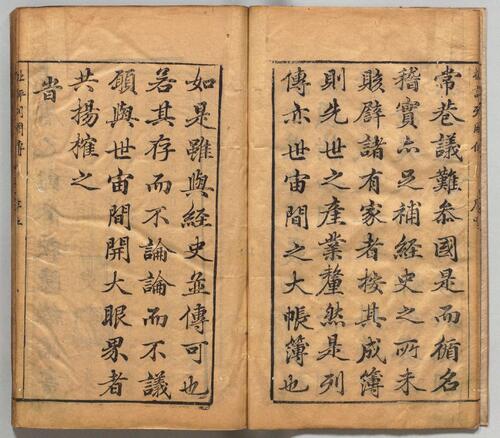 常巷議難叅國是而循名
稽實亦足補經史之所未
賅譬諸有家者按其成簿
則先世之產業釐然是列
傳亦世宙間之大帳簿也
如是雖與經史並傳可也
若其存而不論論而不議
願與世宙間開大眼界者
共揚搉之
旹